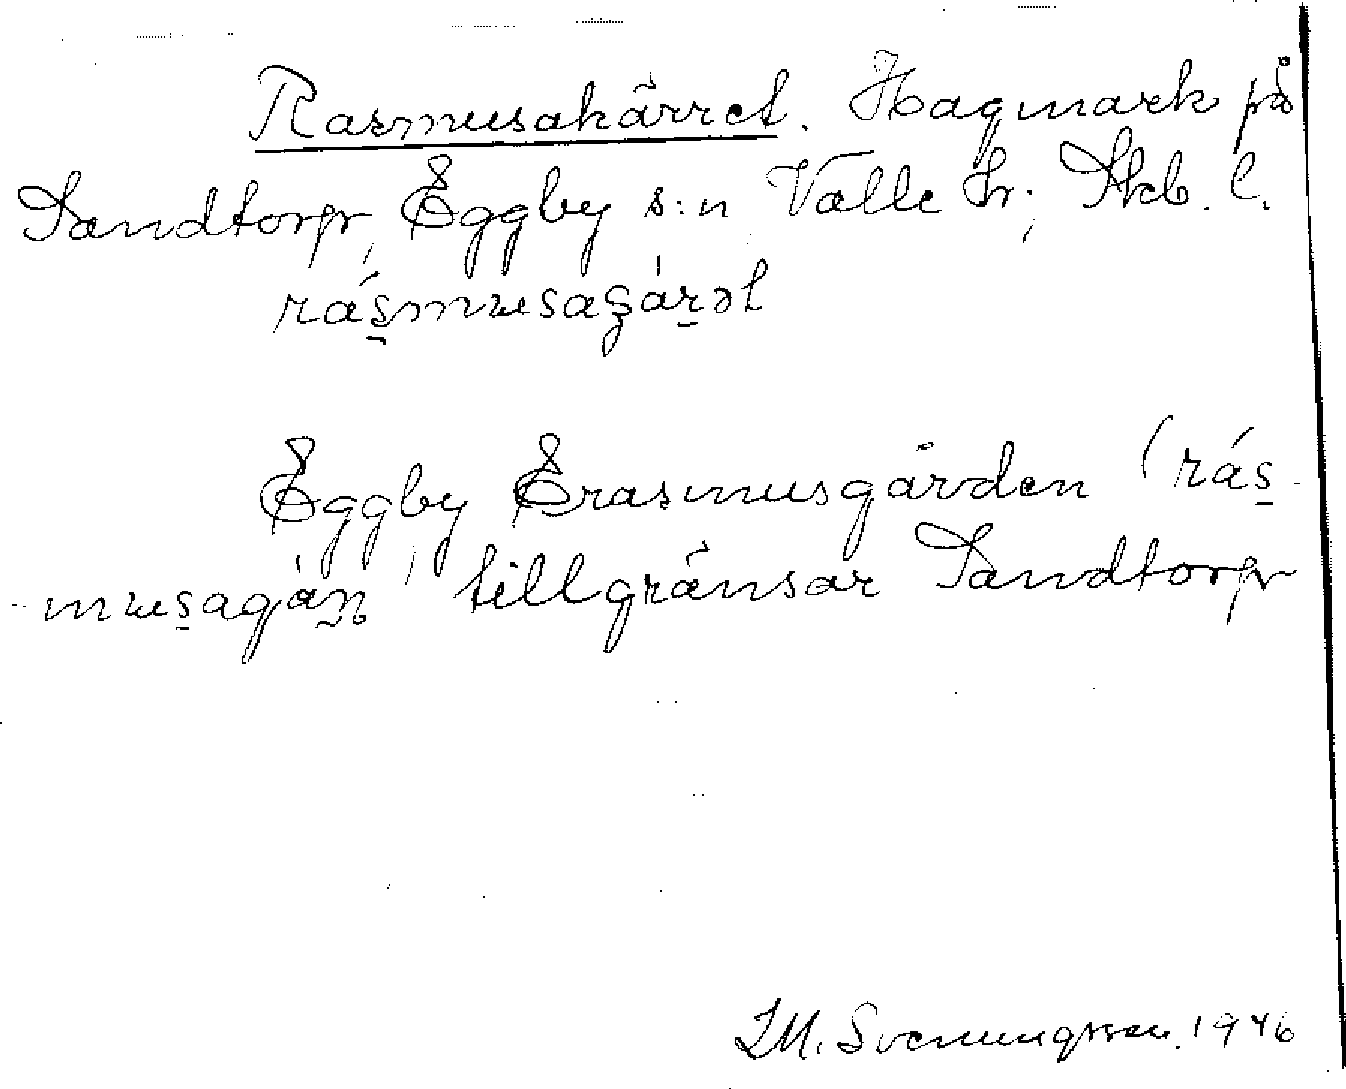 Rasmusakärret. Hagmark på
Sandtorp, Eggby s:n Valle hr; Skb. l.
Eggby Erasmusgården (rás-
musagán) tillgränsar Sandtorp
I.M. Svenungsson. 1946